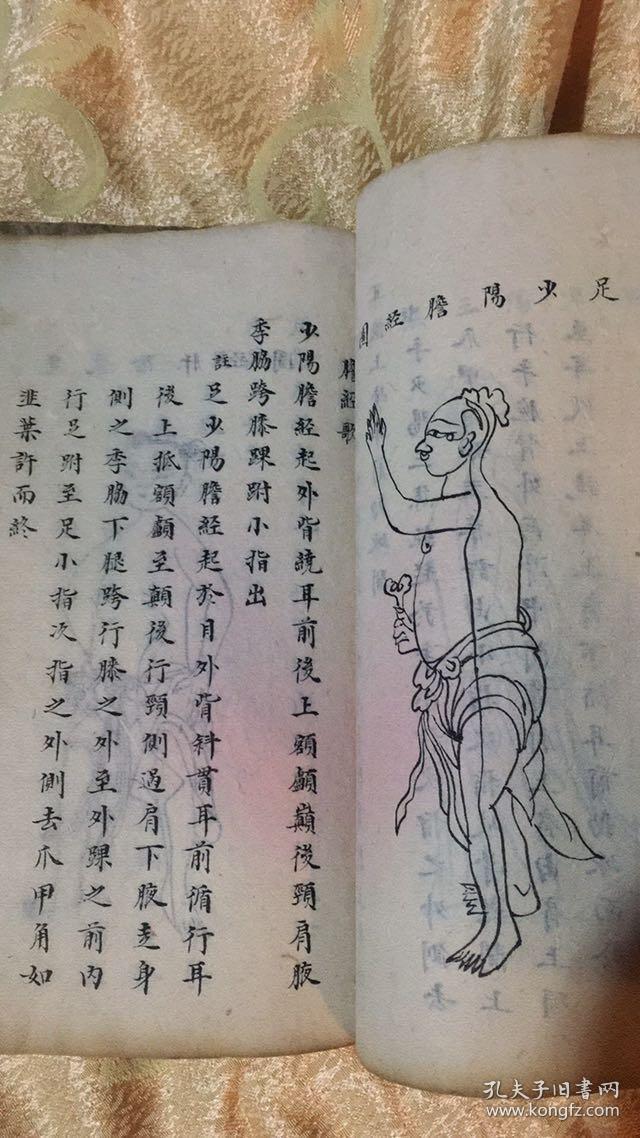 足少陽膽經圖
膽經歌
少陽膽經起外眥繞耳前後上額顱巔後頸肩腋
季脇跨膝踝跗小指出
註足少陽膽經起於目外眥斜貫耳前循行耳
後上抵額顱至顛後行頸側過肩下腋走身
側之季脇下腿跨行膝之外至外踝之前內
行足跗至足小指次指之外側去爪甲角如
韭葉許而終
孔夫子旧书网
www.kongfz.com